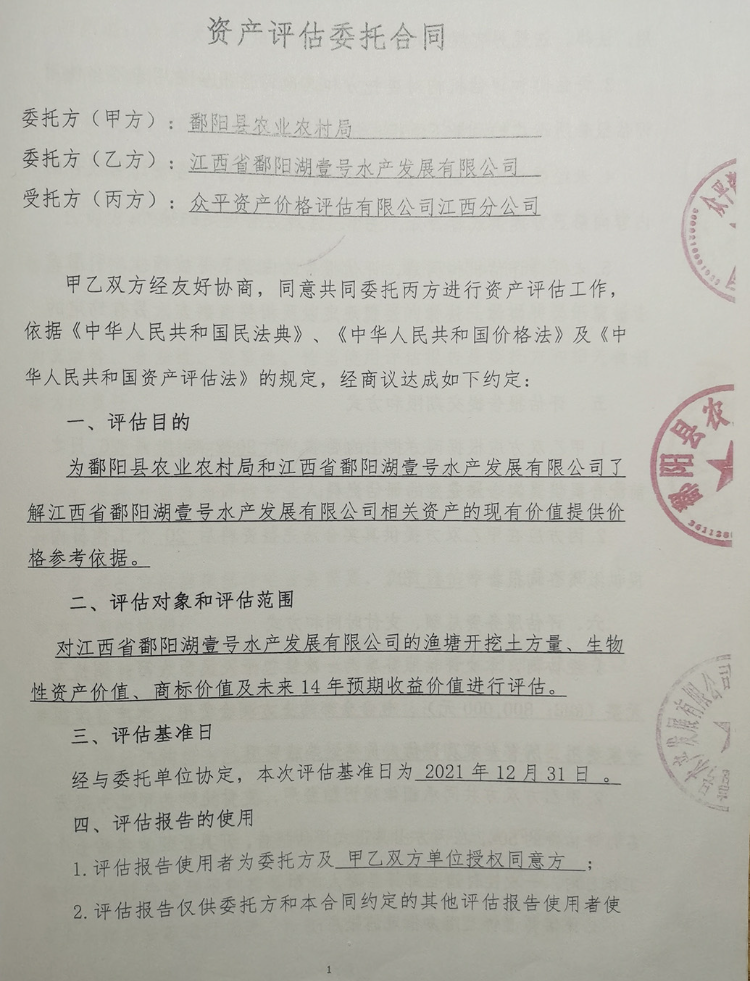 资产评估委托合同
委托方（甲方）：鄱阳县农业农村局
委托方（乙方）：江西省鄱阳湖壹号水产发展有限公司
受托方（丙方）：众平资产价格评估有限公司江西分公司
甲乙双方经友好协商，同意共同委托丙方进行资产评估工作，
依据《中华人民共和国民法典》、《中华人民共和国价格法》及《中
华人民共和国资产评估法》的规定，经商议达成如下约定：
一、评估目的
为鄱阳县农业农村局和江西省鄱阳湖壹号水产发展有限公司了
解江西省鄱阳湖壹号水产发展有限公司相关资产的现有价值提供价
格参考依据。
二、评估对象和评估范围
对江西省鄱阳湖壹号水产发展有限公司的渔塘开挖土方量、生物
性资产价值、商标价值及未来14年预期收益价值进行评估。
三、评估基准日
经与委托单位协定，本次评估基准日为 2021年12月31日 。
四、评估报告的使用
1.评估报告使用者为委托方及 甲乙双方单位授权同意方 ；
2.评估报告仅供委托方和本合同约定的其他评估报告使用者使
1
众平
鄱阳县农
发展有限公